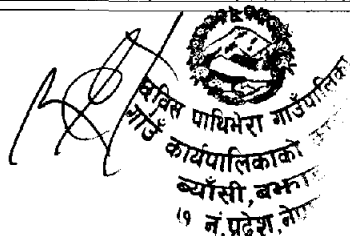 छबिस पाथिभेरा गाउँपालिका
गाउँ कार्यपालिकाको
ब्याँसी, बझाङ
७ नं. प्रदेश, नेपाल